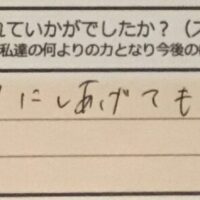 れていかがでしたか？（ス
私達の何よりの力となり今後の
にしあげても